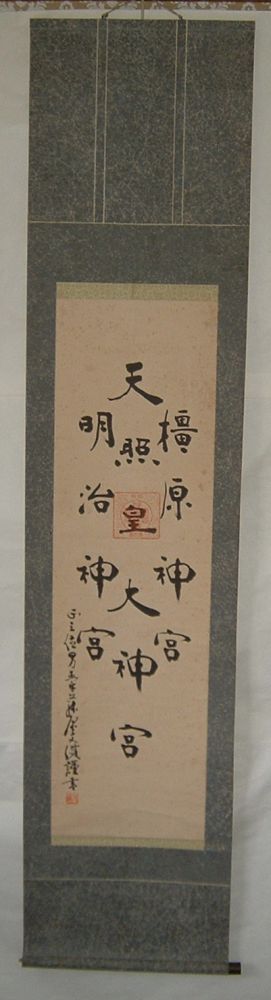 橿原神宮
天照皇大神宮
明治神宮
謹書